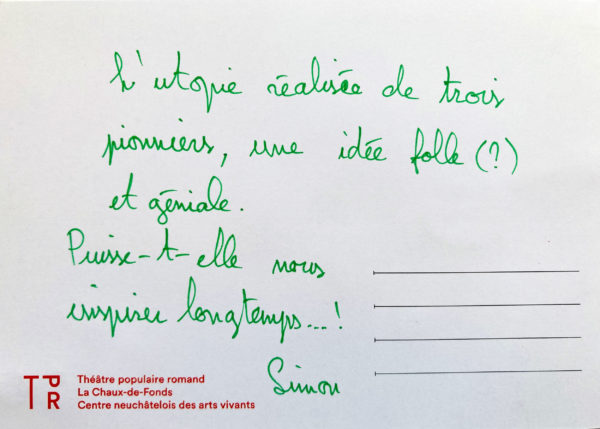 L'utopie réalisée de trois
pionniers, une idée folle (?)
et géniale.
Puisse-t-elle nous
inspirer longtemps...!
Simon
TPR
Théâtre populaire romand
La Chaux-de-Fonds
Centre neuchâtelois des arts vivants